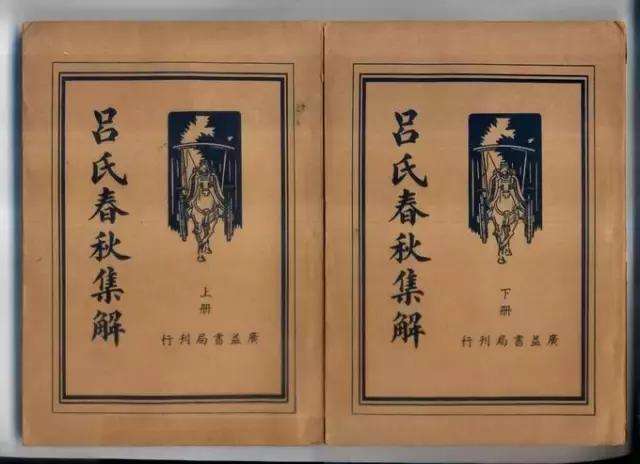 呂氏春秋集解
上册
廣益書局刊行
呂氏春秋集解
下册
廣益書局刊行